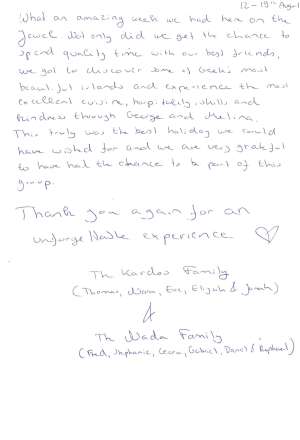 12 - 19th August
What an amazing week we had here on the
Jewel. Not only did we get the chance to
spend quality time with our best friends,
we got to discover some of Greek's most
beautiful islands and experience the most
excellent cuisine, hospitality, skills and
kindness through George and Melina.
This truly was the best holiday we could
have wished for and we are very grateful
to have had the chance to be part of this
group.
Thank you again for an
unforgettable experience
The Kardos Family
(Thomas, Eve, Elijah &
&
The Wada Family
(Fred, Stephanie, Gabriel, Daniel & Raphael)